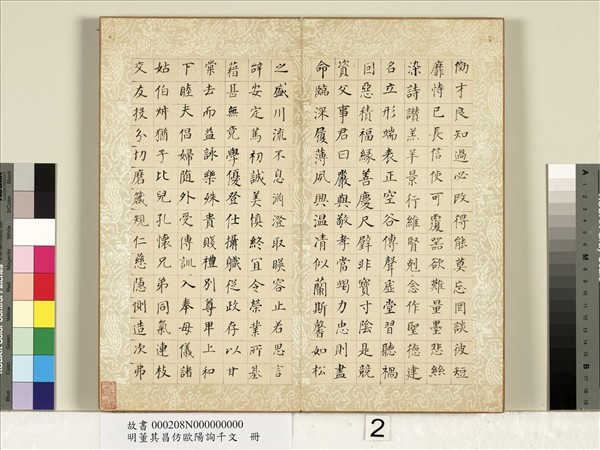 効才良知過必改得能莫忘罔談彼短
靡恃己長信使可覆器欲難量墨悲絲
染詩讚羔羊景行維賢剋念作聖德建
名立形端表正空谷傳聲虛堂習聽禍
因惡積福緣善慶尺璧非寶寸陰是競
資父事君曰嚴與敬孝當竭力忠則盡
命臨深履薄夙興溫凊似蘭斯馨如松
之盛川流不息淵澄取暎容止若思言
辞安定篤初誠美慎終宜令榮業所基
藉甚無竟學優登仕攝職從政存以甘
棠去而益詠樂殊貴賤禮別尊卑上和
下睦夫唱婦隨外受傳訓入奉母儀諸
姑伯叔猶子比兒孔懷兄弟同氣連枝
交友投分切磨箴規仁慈隱惻造次弗
故書 000208N000000000
明董其昌仿歐陽詢千文 冊
2